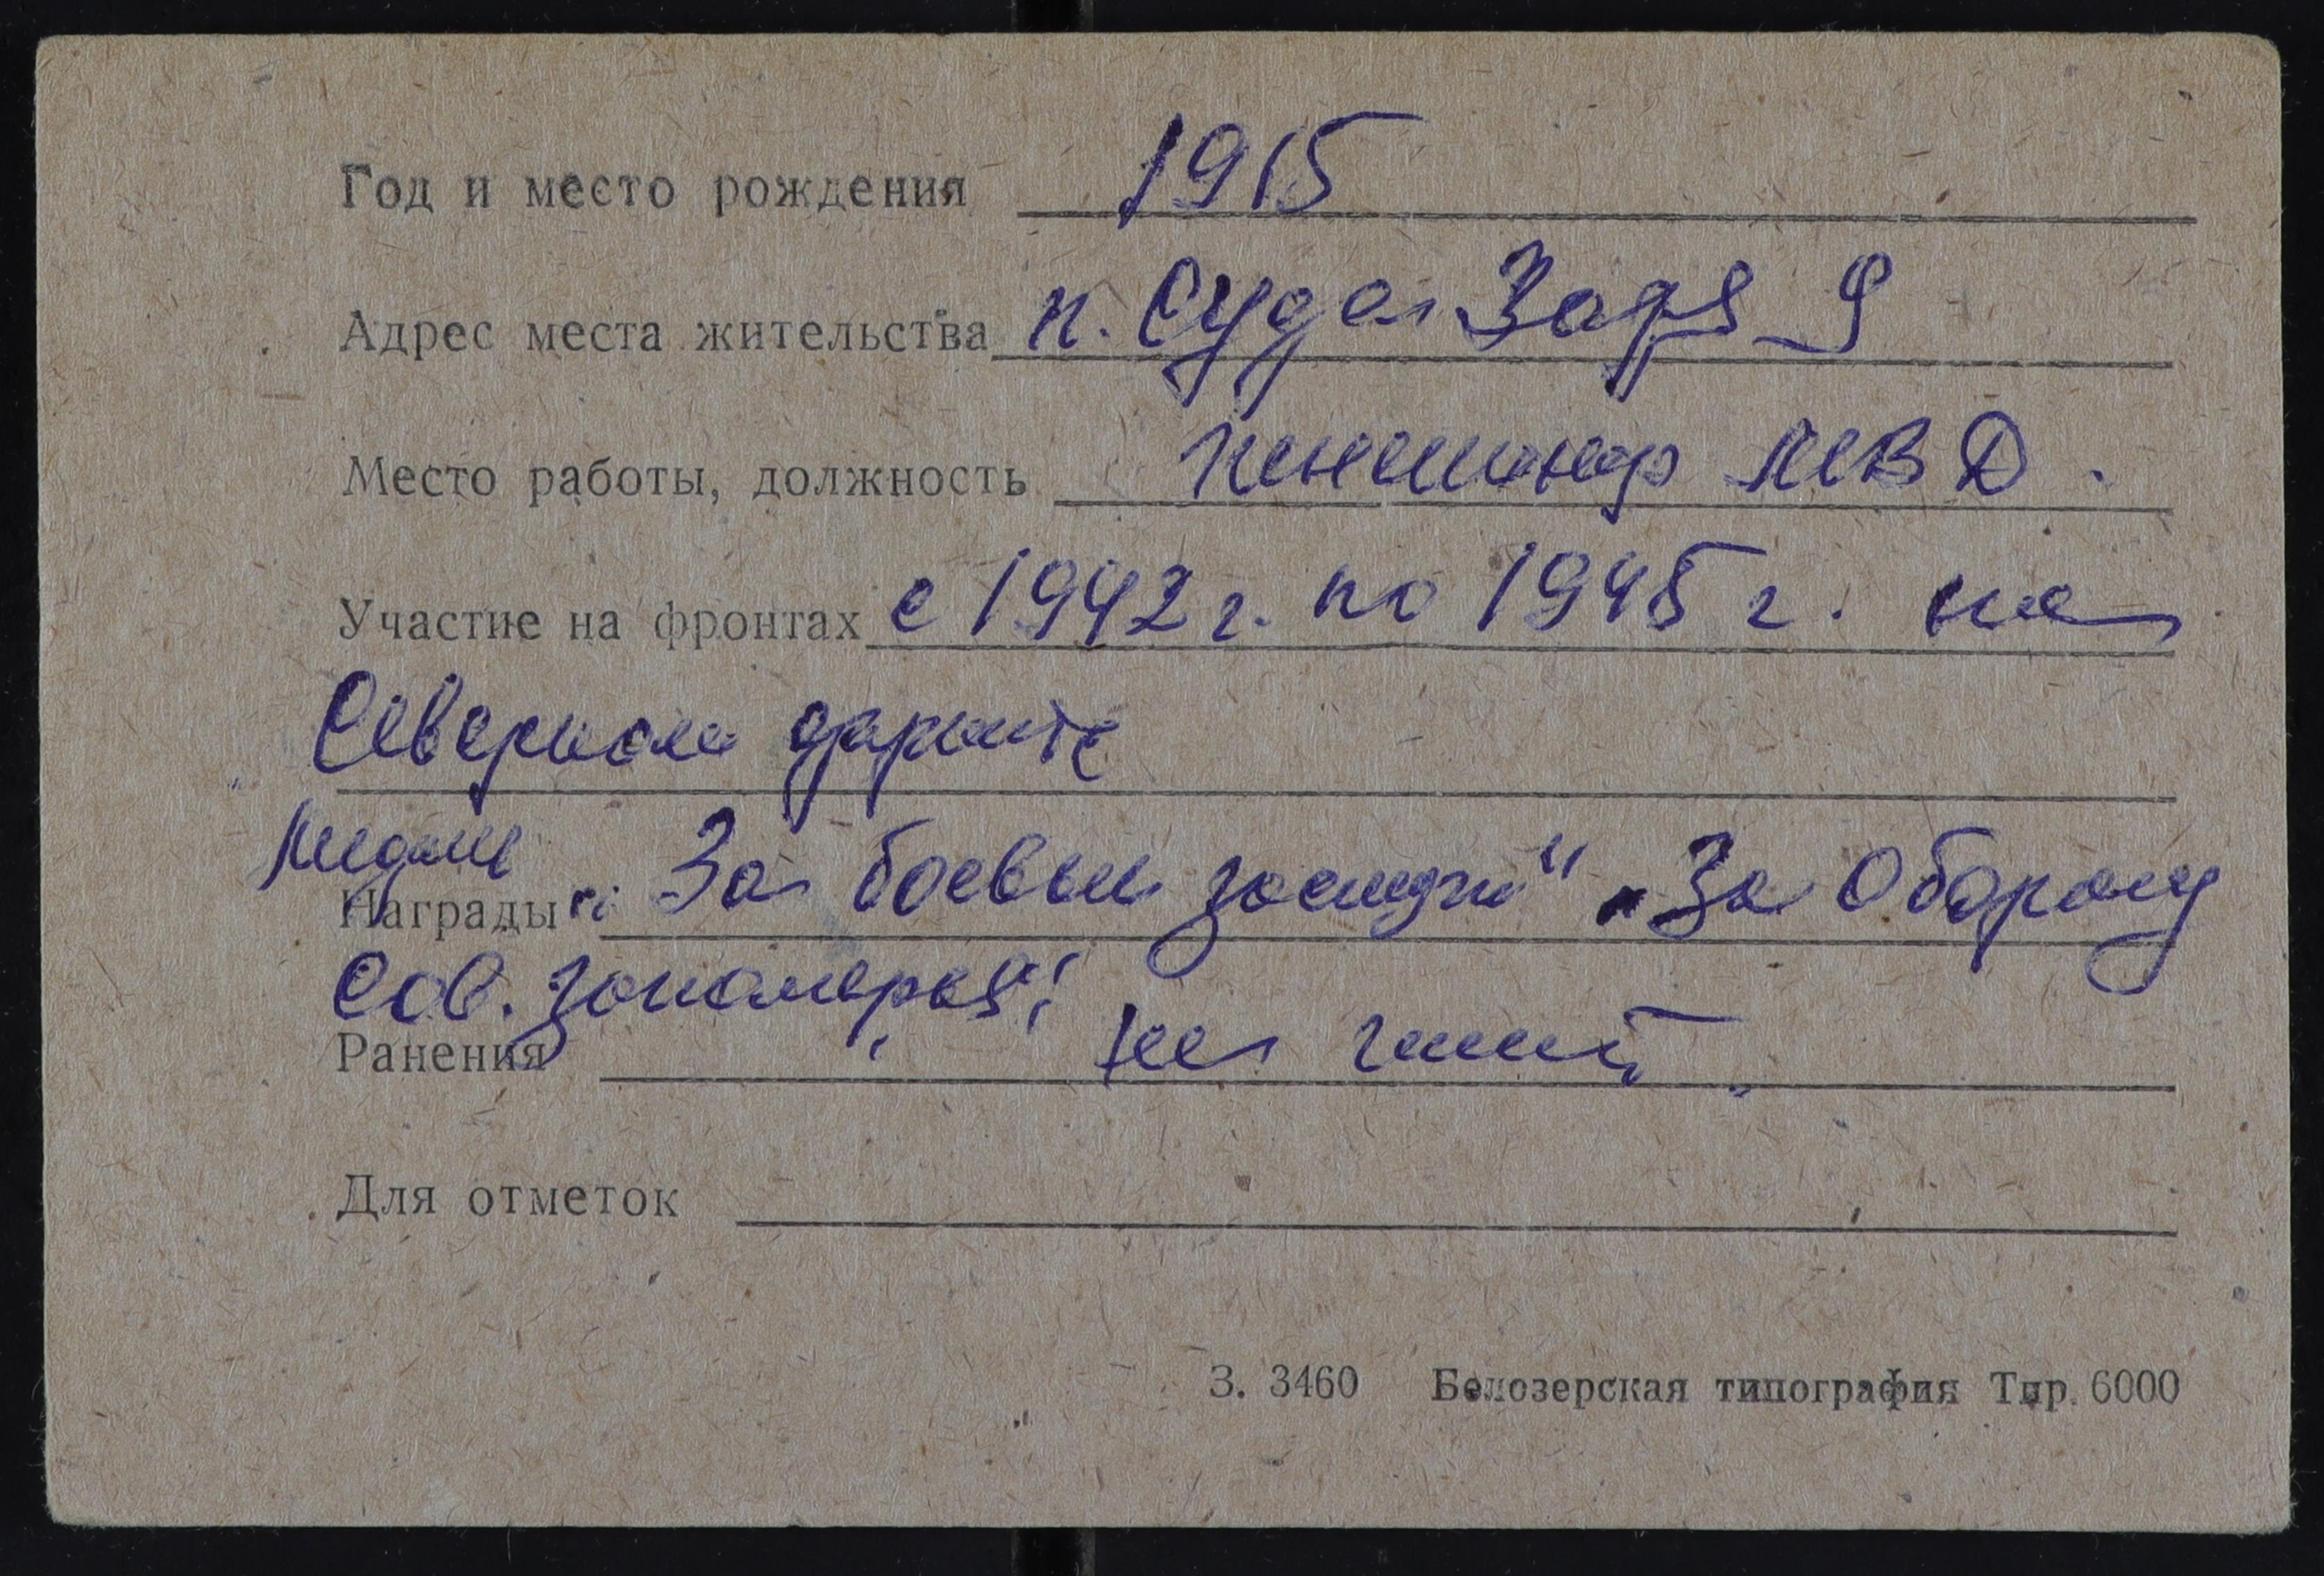 Год и место рождения 1915
Адрес места жительства п. Суда Заря 9
Место работы, должность Инженер МВД.
Участие на фронтах с 1942 г. по 1945 г. на
Северном фронте
Медали
Награды „За боевые заслуги“ „За Оборону
Сов. заполярья“;
Ранения не имеет
Для отметок
З. 3460 Белозерская типография Тир. 6000